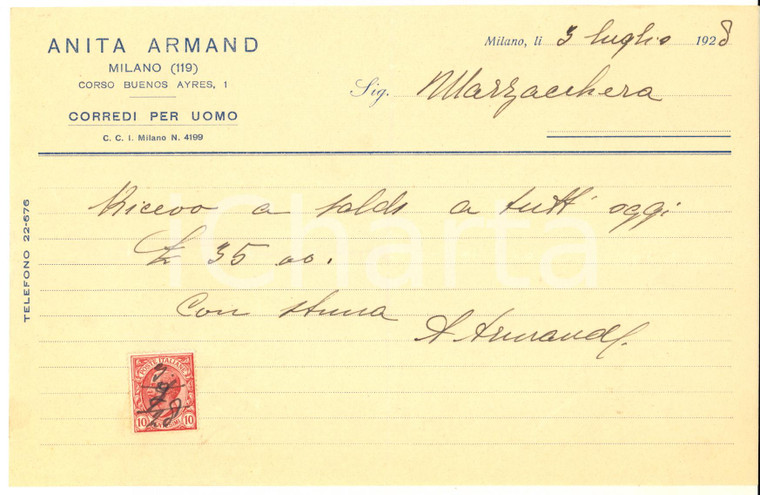 ANITA ARMAND
MILANO (119)
CORSO BUENOS AYRES, 1
CORREDI PER UOMO
C. C. I. Milano N. 4199
Milano, li 3 luglio 1928
Sig. Marzacchera
TELEFONO 22-676
Ricevo a saldo a tutt' oggi
£ 35 00.
Con stima
A Armand
iCharta
POSTE ITALIANE
3.7.28
10 10